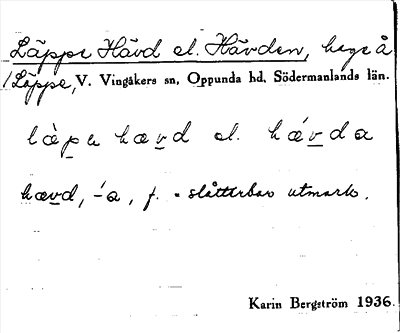 Läppe Hävd el. Hävden, hage å
/Läppe, V. Vingåkers sn, Oppunda hd, Södermanlands län.
lὰpe hævd el. hǽvda
hævd, -́a, f. = slåtterbar utmark.
Karin Bergström 1936.